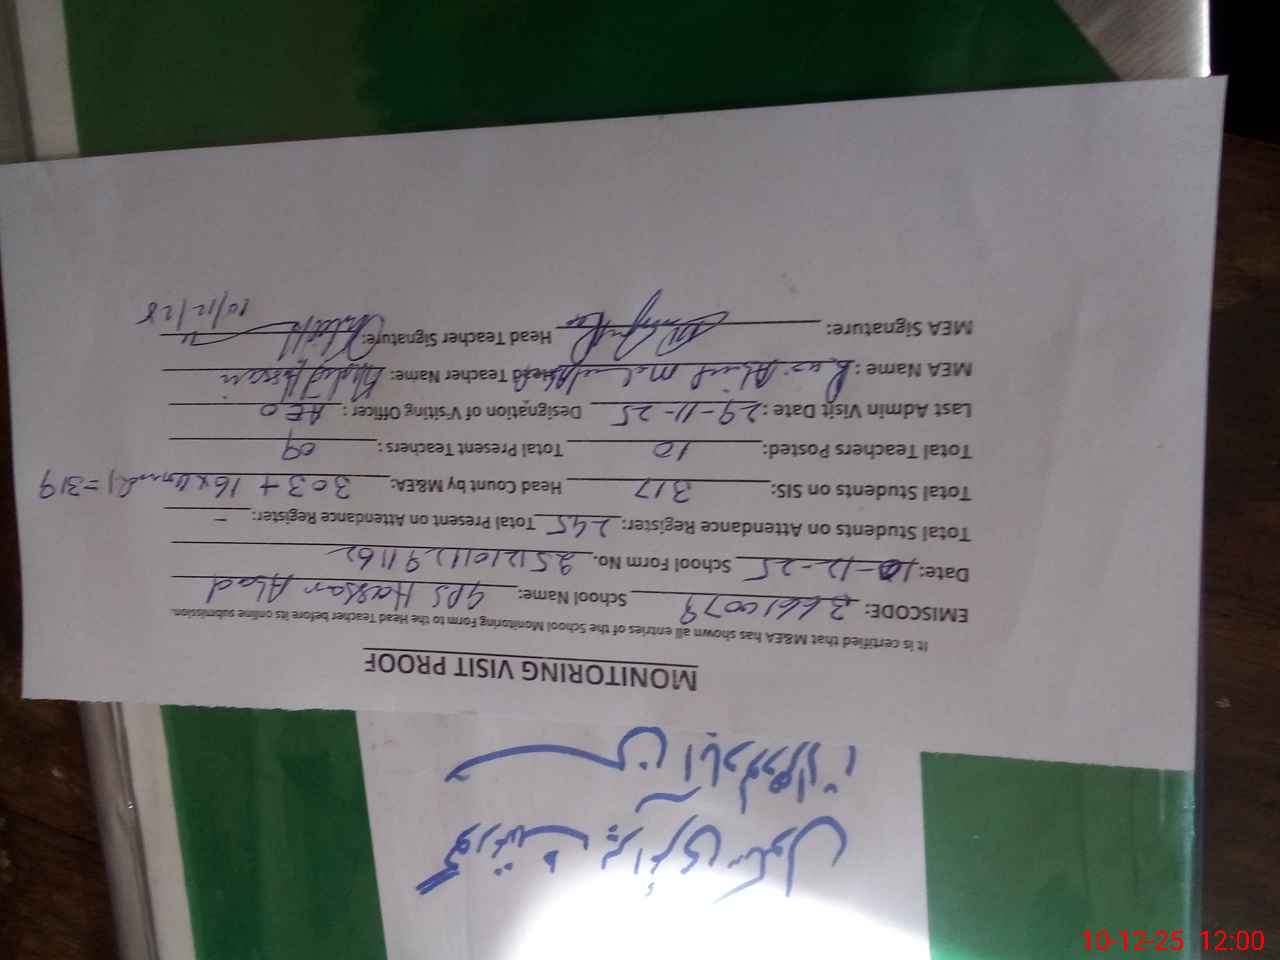 MONITORING VISIT PROOF
It is certified that M&EA has shown all entries of the School Monitoring Form to the Head Teacher before its online submission.
EMISCODE: 36610079 School Name: GPS Hassan Abad
Date: 10-12-25 School Form No.
Total Students on Attendance Register: 245 Total Present on Attendance Register: -
Total Students on SIS: 317 Head Count by M&EA: 303 + 16 = 319
Total Teachers Posted: 10 Total Present Teachers: 09
Last Admin Visit Date: 29-11-25 Designation of Visiting Officer: AEO
MEA Name: Head Teacher Name:
MEA Signature: Head Teacher Signature:
10/12/25
گورنمنٹ پرائمری سکول
حسن آباد
10-12-25 12:00